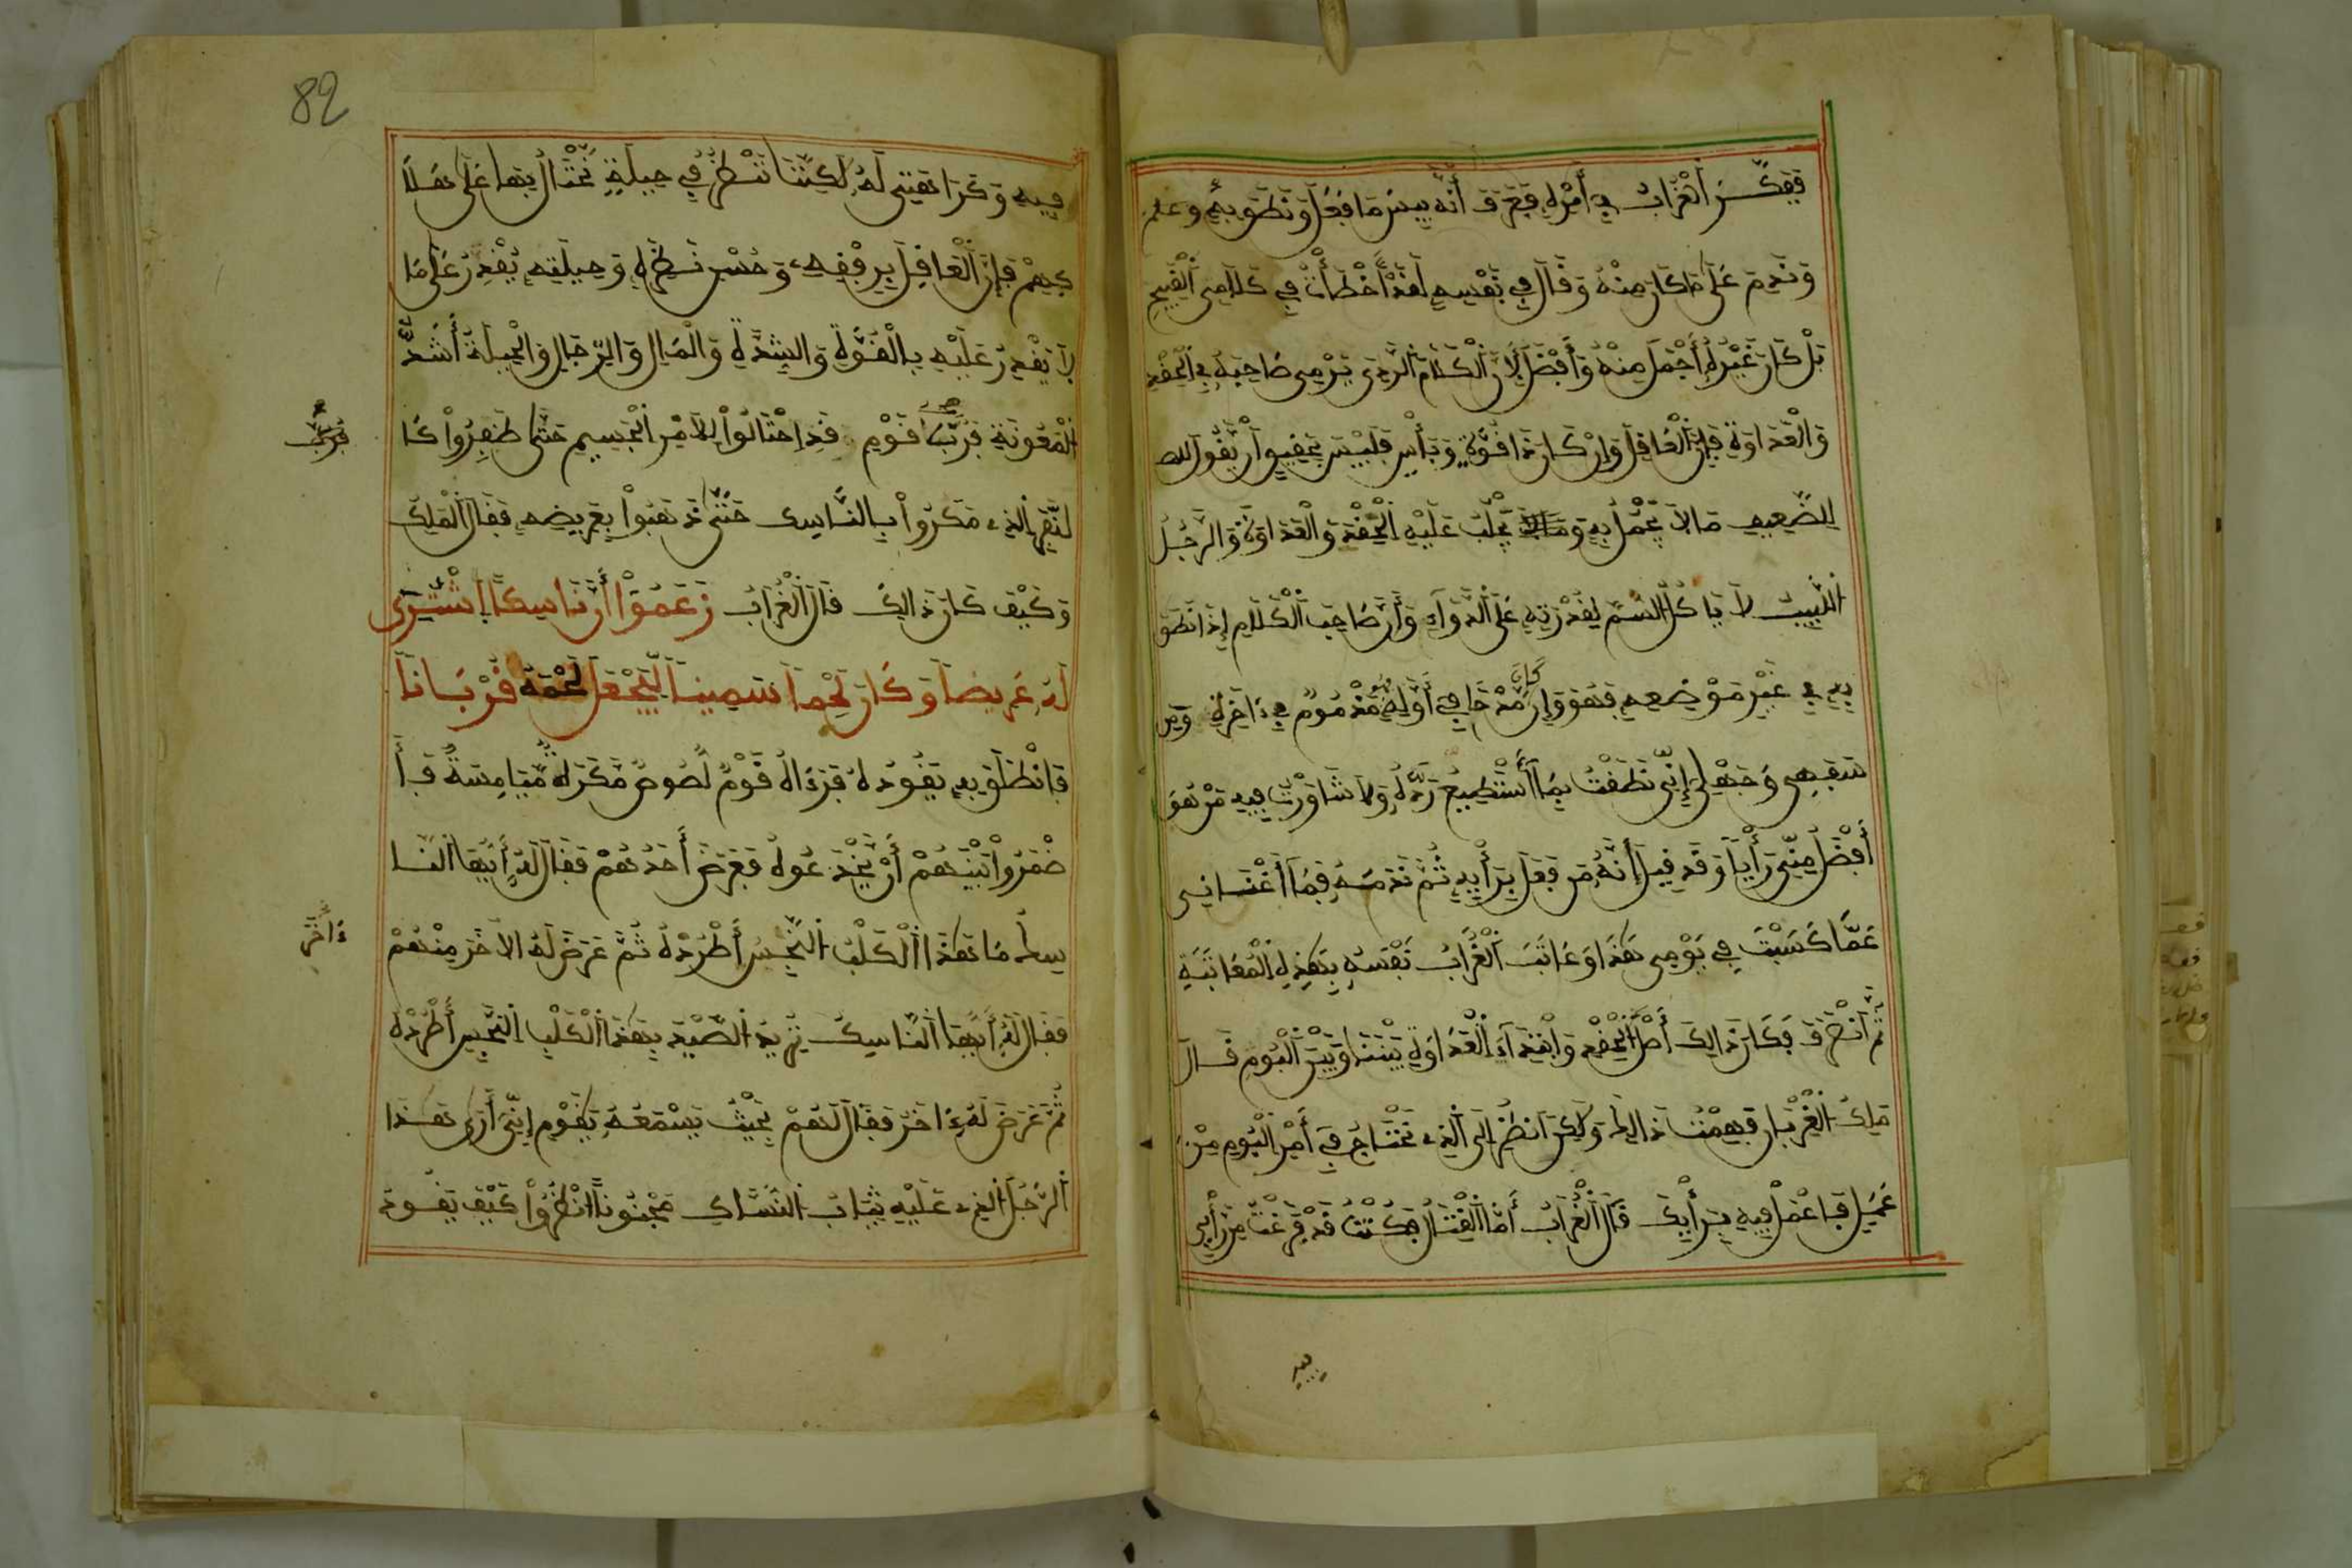 ففكر الغراب في أمره فعرف أنه بيس ما فعل ونطق به وعلم
وندم على ما كان منه وقال في نفسه لقد أخطأت في كلامي القبيح
بل كان غيره أجمل منه وأفضل لأن الكلام الردي يرمى صاحبه في الحقد
والعداوة فإن العاقل وإن كان ذا قوة وبأس فليس بحقيق أن يقول
للضعيف ما لا يحمل به وما يجلب عليه الحقد والعداوة والرجل
اللبيب لا ياكل السم لقدرته على الدواء وأن صاحب الكلام إذا نطق
به في غير موضعه فهو وإن كان مدحا في أوله فهو مذموم في ءاخره ومن
سفهي وجهلي إني نطقت بما أستطيع رده ولا شاورت فيه من هو
أفضل مني رأيا وقد قيل أنه من فعل برأيه ثم ندمه فما أغناني
عما كسبت في يومي هذا وعاتب الغراب نفسه بهذه المعاتبة
ثم انصرف فكان ذالك أصل الحقد وابتداء العداوة بيننا وبين البوم قال
ملك الغربان فهمت ذالك ولكن انظر إلى الذي نحتاج في أمر البوم من
عمل فاعمل فيه برأيك قال الغراب أما القتال فكنت قد فرغت من رأيي
فيه
82
فيه وكراهيتي له لكننا ننظر في حيلة نحتال بها على هلا
كهم فإن العاقل برفقه وحسن نظره وحيلته يقدر على ما
لا يقدر عليه بالقوة والشدة والمال والرجال والحيلة أشد
المعونة فرب قوم قد احتالوا للأمر الجسيم حتى ظفروا كا
فرب
لنفر الذي مكروا بالناسك حتى ذهبوا بعريضه فقال الملك
وكيف كان ذالك قال الغراب زعموا أن ناسكا اشترى
له عريضا وكان لحما سمينا ليجعل لحمه قربانا
فانطلق به يقوده فرءاه قوم لصوص مكرة ثمانية فأ
ضمروا بينهم أن يخدعوه فعرض أحدهم فقال له أيها النا
سك ما هذا الكلب النجس أطرده ثم عرض له الاخر منهم
ءاخر
فقال له أيها الناسك تريد الصيد بهذا الكلب النجس أطرده
ثم عرض له ءاخر فقال لهم بحيث يسمعه يقوم إني أرى هذا
الرجل الذي عليه ثياب النساك مجنونا انظروا كيف يقود